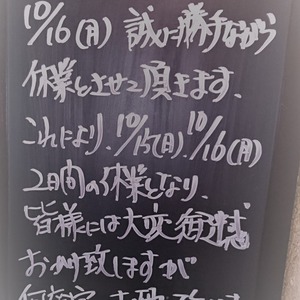 10/16(月) 誠に勝手ながら
休業とさせて頂きます、
これにより、10/15(日)、10/16(月)
2日間の休業となり、
皆様には大変御迷惑
お掛け致しますが